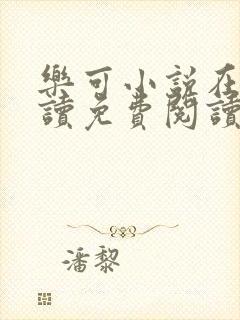 樂可小說在
讀免費閱讀
潘黎